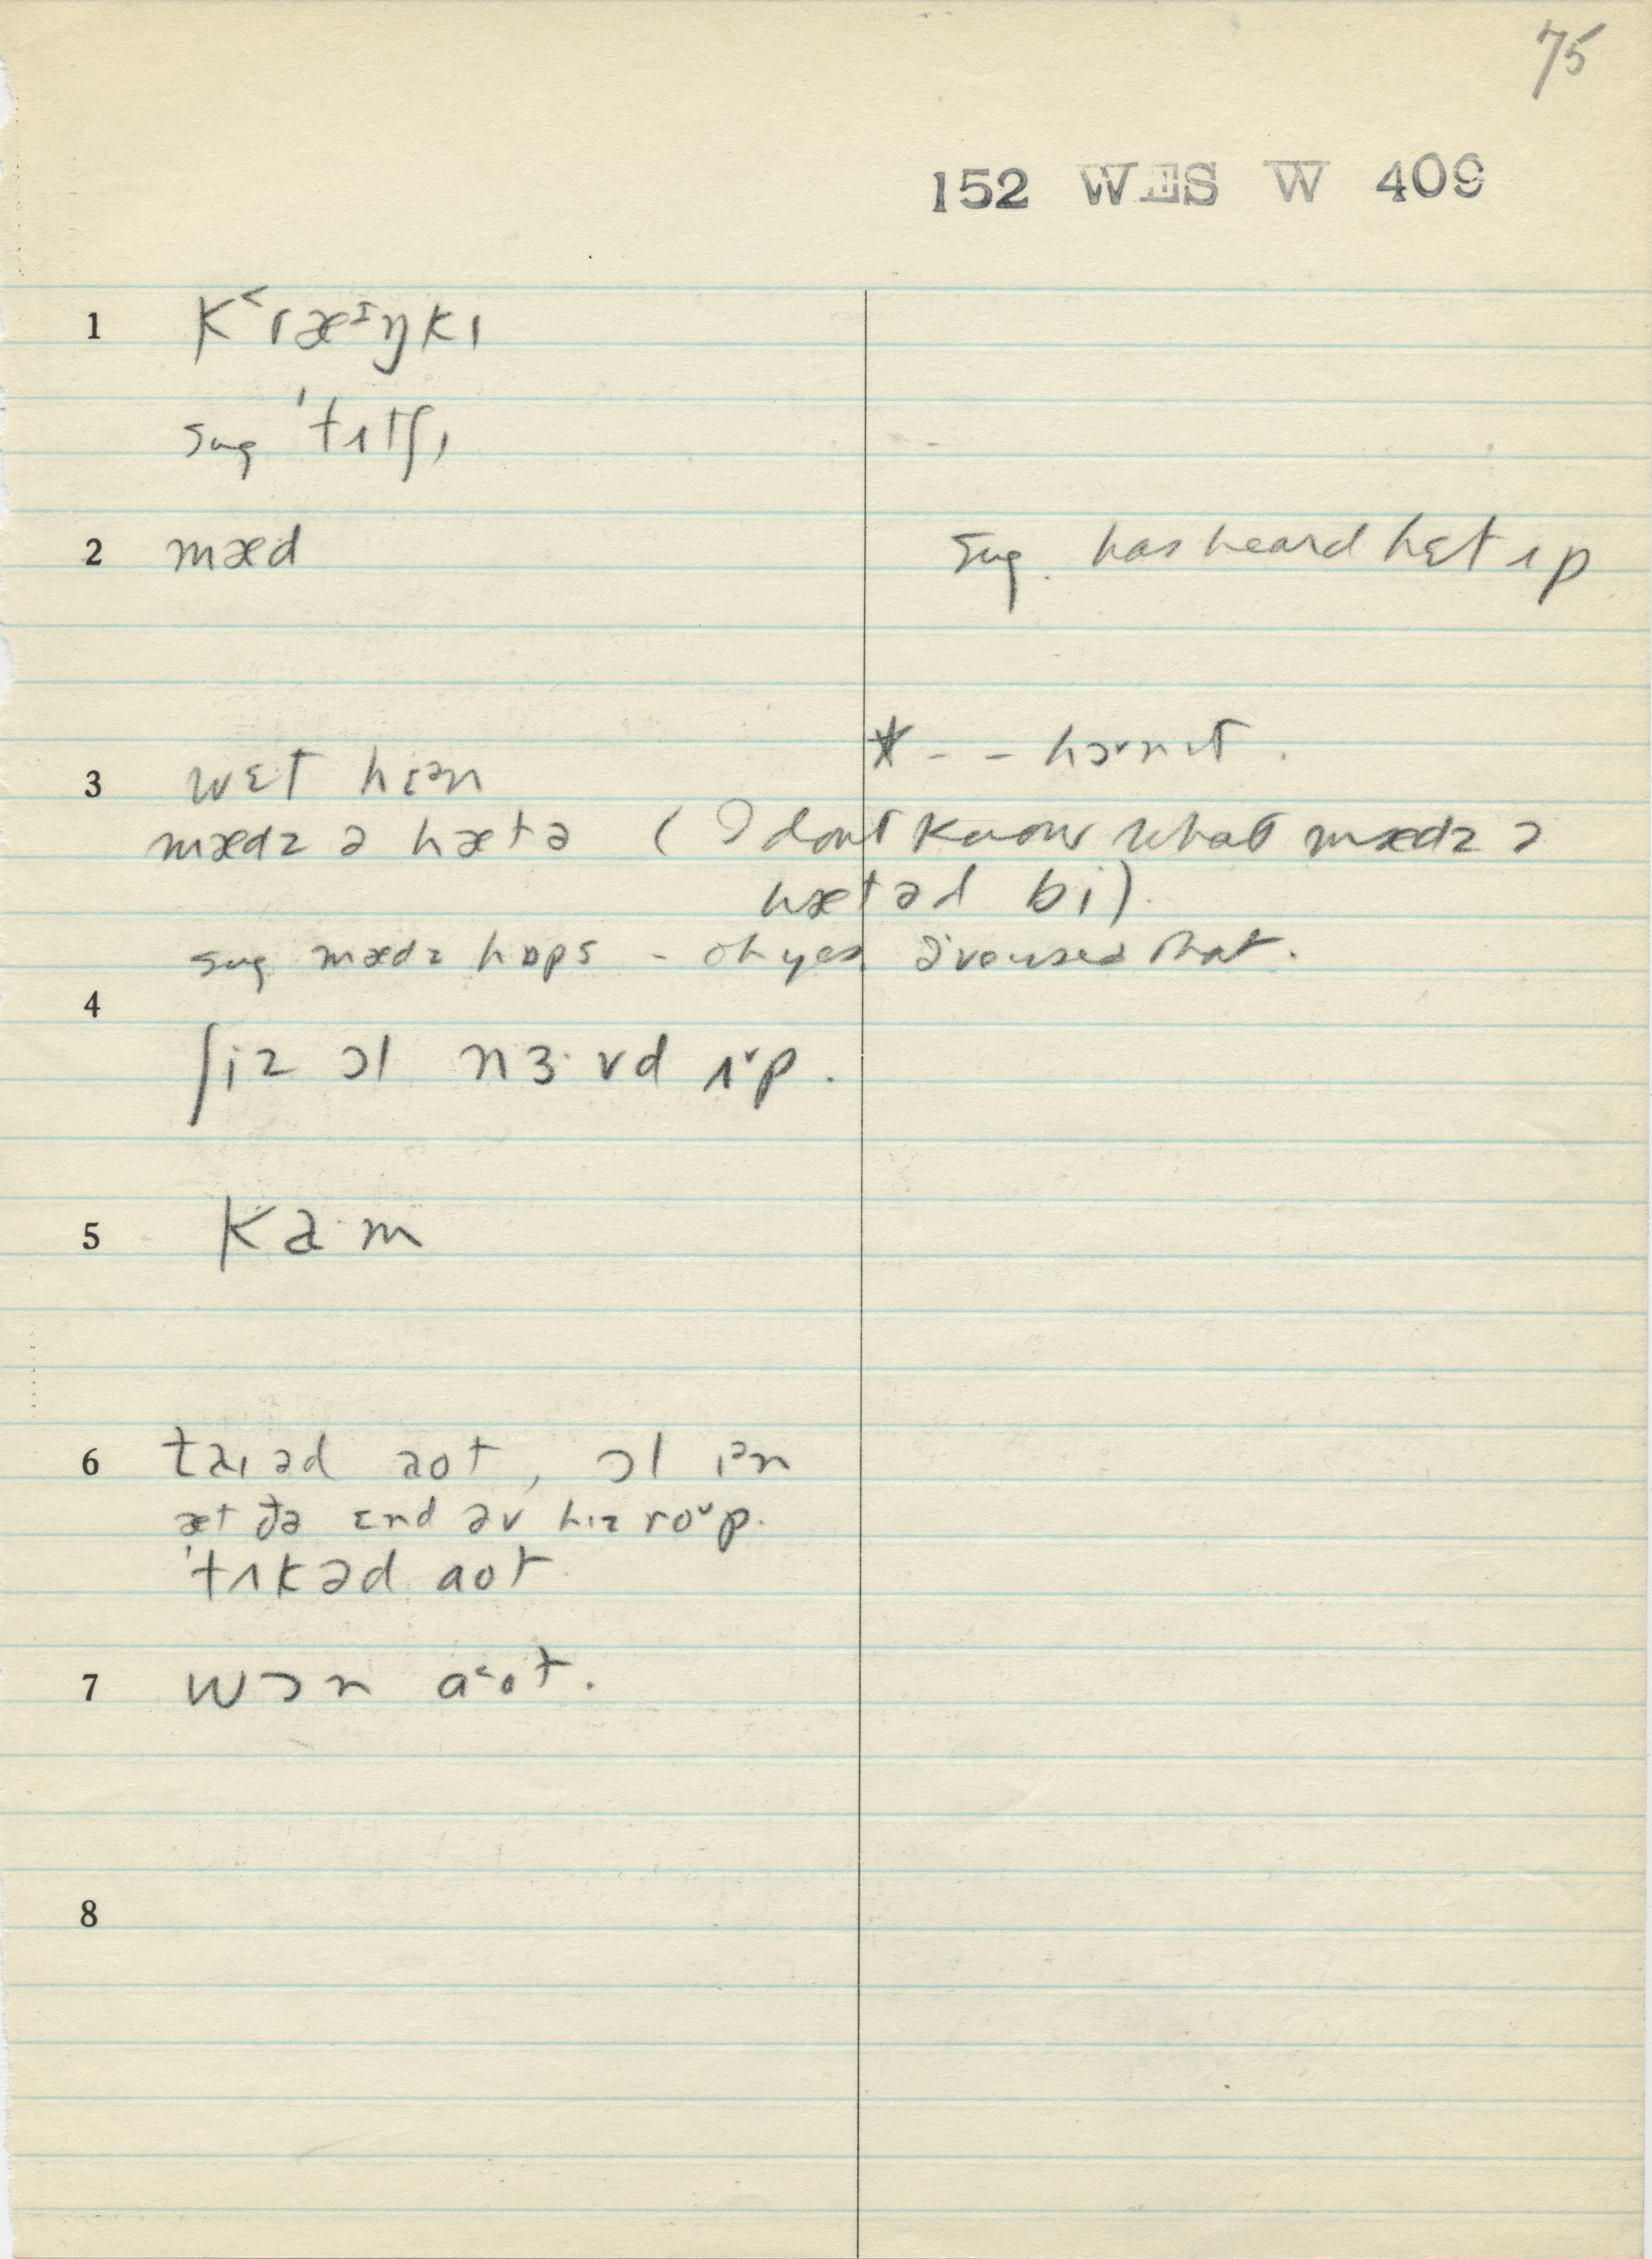 75
152 WES W 409
1 k˂ræᶦŋkɪ
sug 'tʌtʃɪ
2 mæd
sug. has heard hɛt ʌp
* - - hɔvnɪt .
3 wɛt hɛən
mædz ə hætə ( I dont know what mædz ə
hætəd bi).
sug mædz hɒps - oh yes I've used that.
4
ʃiz ɔl nɜ·vd ʌ˅p.
5 ka·m
6 taɪəd aot, ɔl ɪən
æt ðə ɛnd əv hɪz ro˅p.
'tʌkəd aot
7 wɔn a˂ot.
8